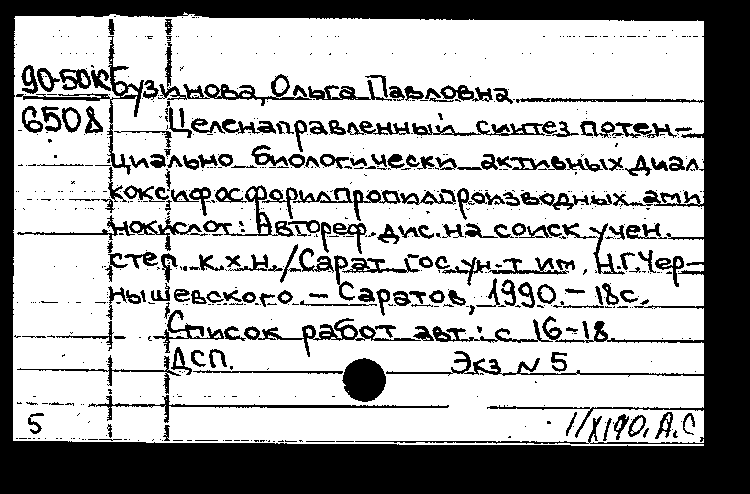 90-50к Бузинова, Ольга Павловна
6508 Целенаправленный синтез потен-
циально биологически активных диал
коксифосфорилпропилпроизводных ами
нокислот: Автореф. дис. на соиск. учен.
степ. к.х.н. / Сарат. гос. ун-т им. Н.Г.Чер-
нышевского. - Саратов, 1990. - 18 с.
Список работ авт.: с. 16-18.
ДСП. Экз. N 5.
5 11/XI90. А.С.